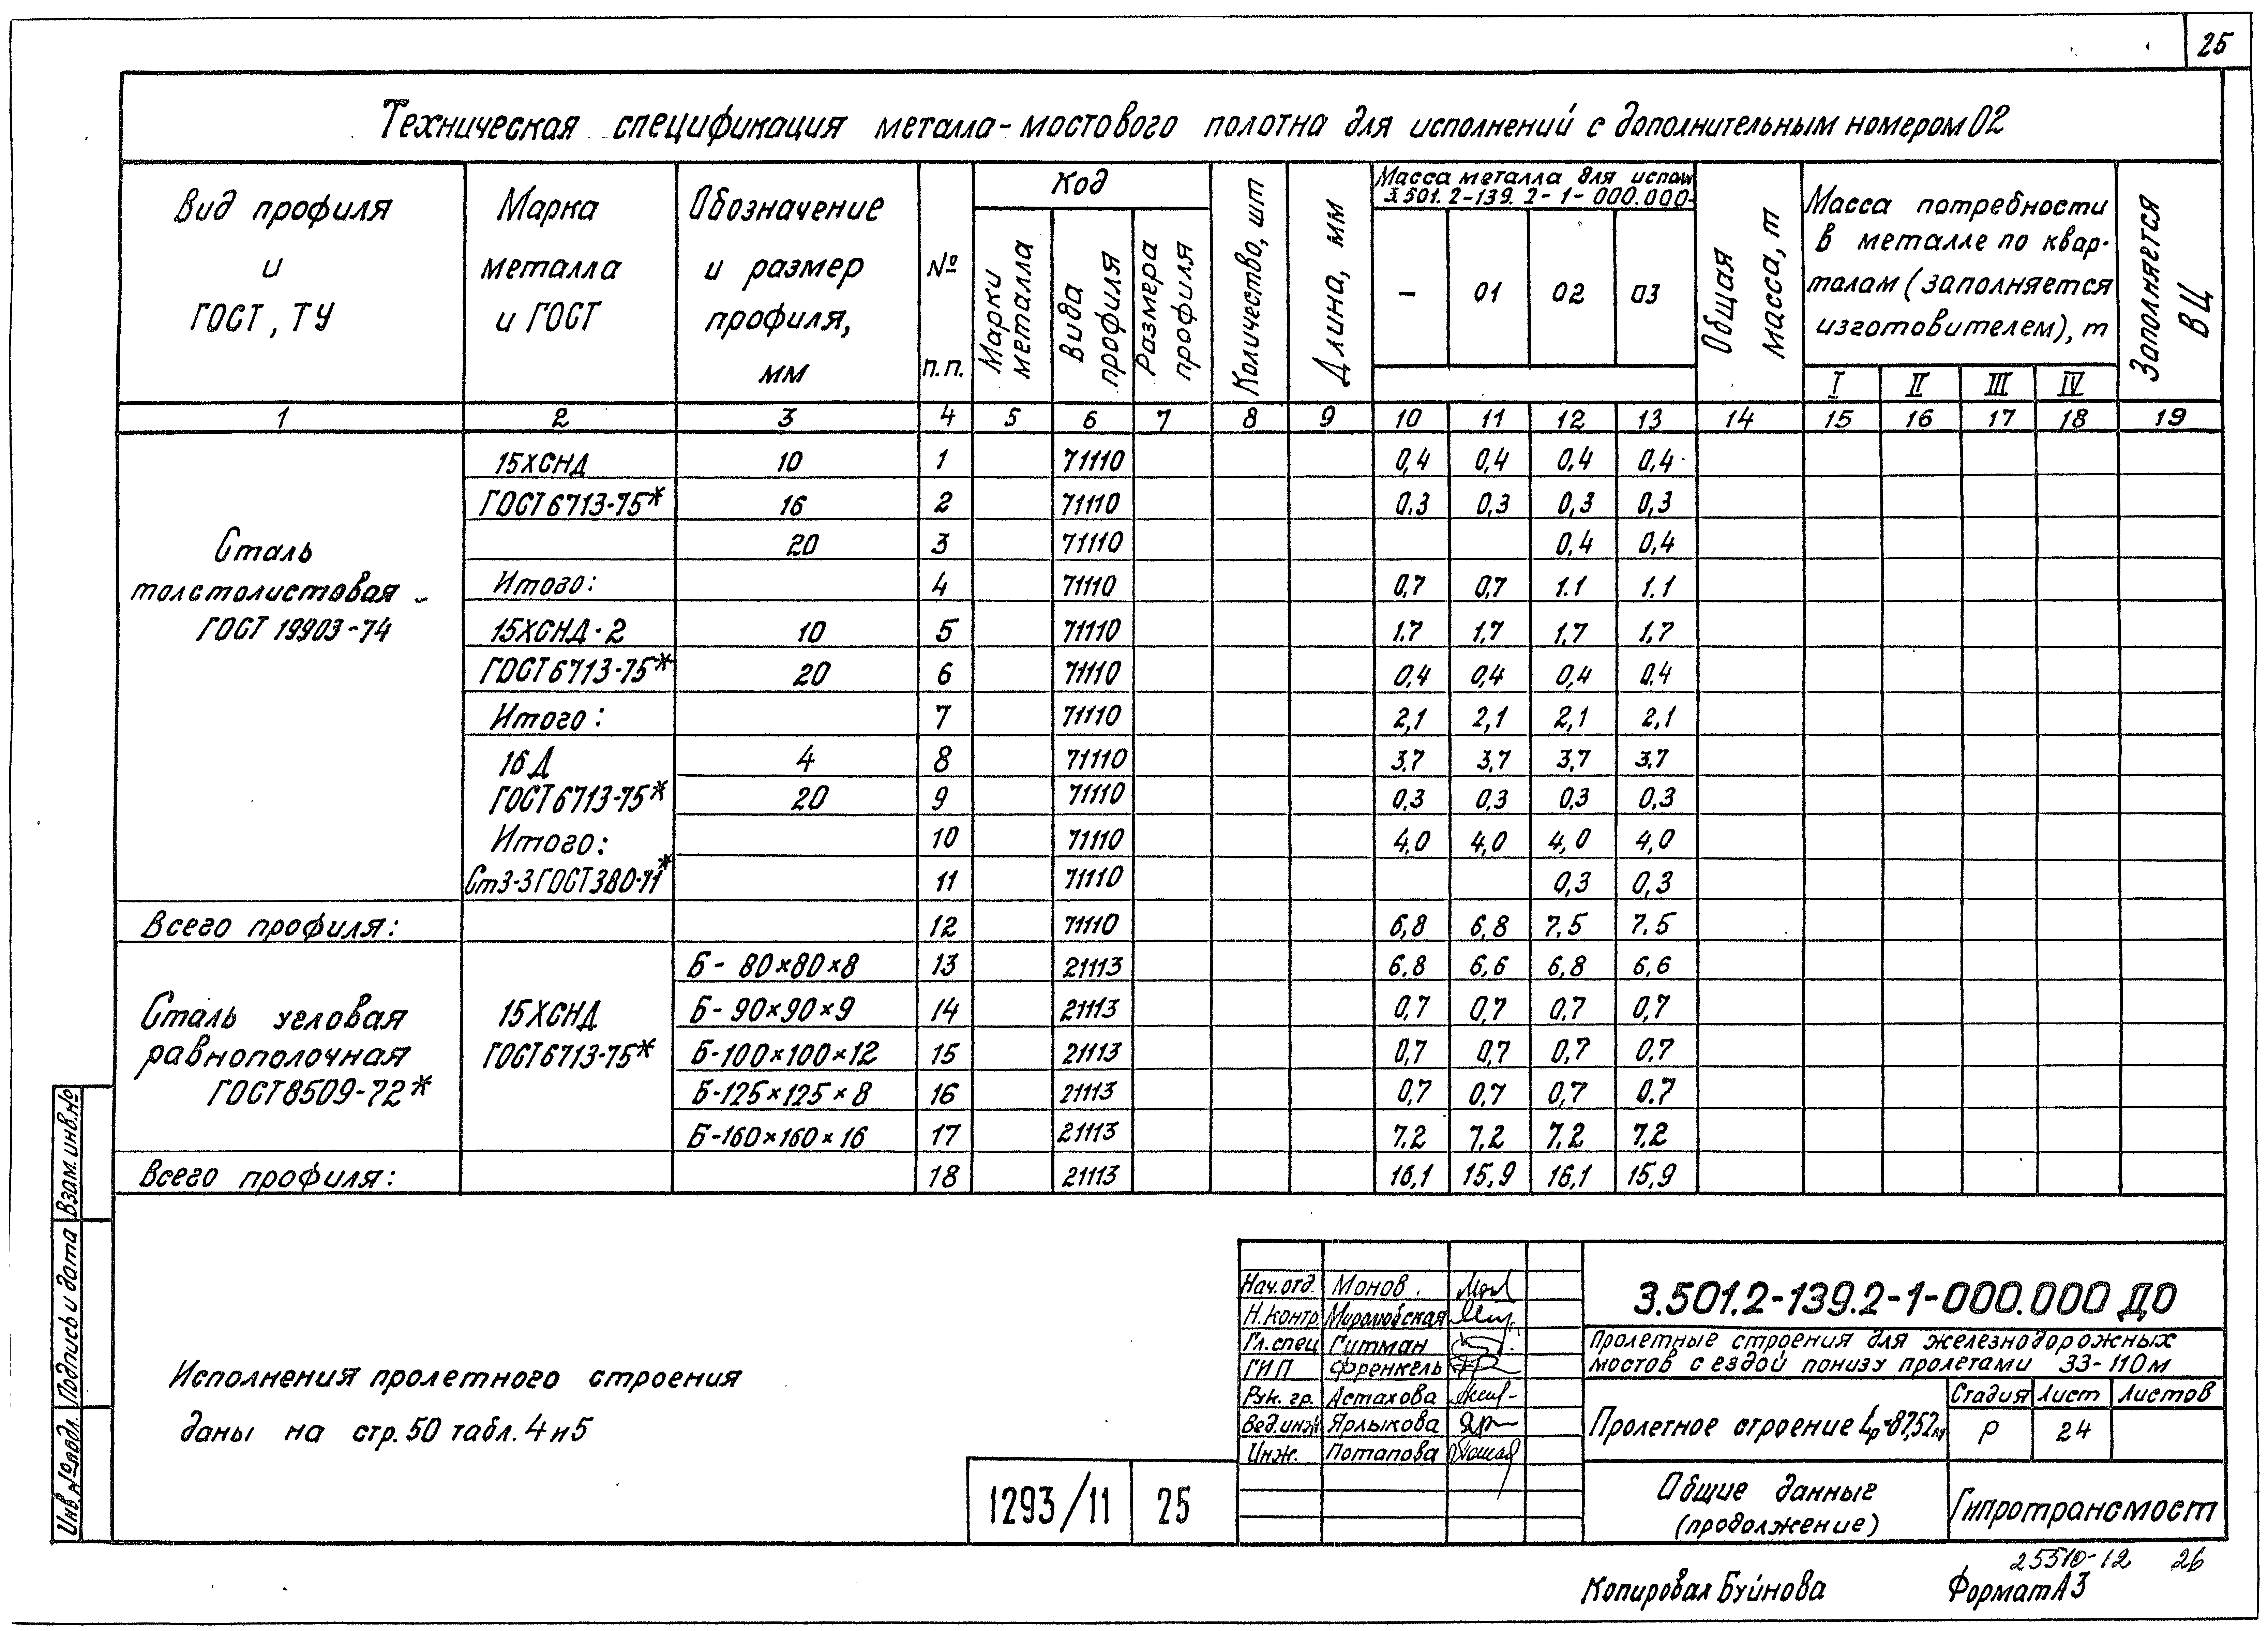 25
Техническая спецификация металла-мостового полотна для исполнений с дополнительным номером 02
Вид профиля и ГОСТ, ТУ
Марка металла и ГОСТ
Обозначение и размер профиля, мм
№ п.п.
Код
Марки металла
Вида профиля
Размера профиля
Количество, шт
Длина, мм
Масса металла для испол
3.501.2-139.2-1-000.000-
– 01 02 03
Общая масса, т
Масса потребности в металле по кварталам (заполняется изготовителем), т
I II III IV
Заполняется ВЦ
1 2 3 4 5 6 7 8 9 10 11 12 13 14 15 16 17 18 19
Сталь толстолистовая ГОСТ 19903-74
15ХСНД 10 1 71110 0,4 0,4 0,4 0,4
ГОСТ6713-75* 16 2 71110 0.3 0,3 0,3 0,3
20 3 71110 0,4 0,4
Итого: 4 71110 0,7 0,7 1.1 1.1
15ХСНД-2 10 5 71110 1.7 1,7 1,7 1,7
ГОСТ6713-75* 20 6 71110 0,4 0,4 0,4 0.4
Итого: 7 71110 2,1 2,1 2,1 2,1
16Д 4 8 71110 3.7 3,7 3,7 3.7
ГОСТ6713-75* 20 9 71110 0.3 0,3 0.3 0,3
Итого: 10 71110 4.0 4,0 4,0 4,0
Ст3-3ГОСТ380-71* 11 71110 0,3 0,3
Всего профиля: 12 71110 6,8 6,8 7,5 7.5
Сталь угловая равнополочная ГОСТ8509-72*
15ХСНД ГОСТ6713-75*
Б- 80×80×8 13 21113 6.8 6,6 6,8 6,6
Б- 90×90×9 14 21113 0,7 0,7 0,7 0,7
Б-100×100×12 15 21113 0,7 0,7 0,7 0.7
Б-125×125×8 16 21113 0,7 0.7 0,7 0.7
Б-160×160×16 17 21113 7.2 7,2 7.2 7,2
Всего профиля: 18 21113 16,1 15,9 16,1 15,9
Исполнения пролетного строения
даны на стр.50 табл. 4 и 5
Взам. инв.№
Подпись и дата
Инв.№подл.
1293/11 25
Нач.отд. Монов
Н.контр. Мироновская
Гл.спец Гитман
ГИП Френкель
Рук. гр. Астахова
Вед.инж Ярлыкова
Инж. Потапова
3.501.2-139.2-1-000.000 ДО
Пролетные строения для железнодорожных
мостов с ездой понизу пролетами 33-110м
Пролетное строение Lр=87,52м
Стадия Лист Листов
Р 24
Общие данные
(продолжение)
Гипротрансмост
25510-12 26
Копировал Буйнова
Формат А3